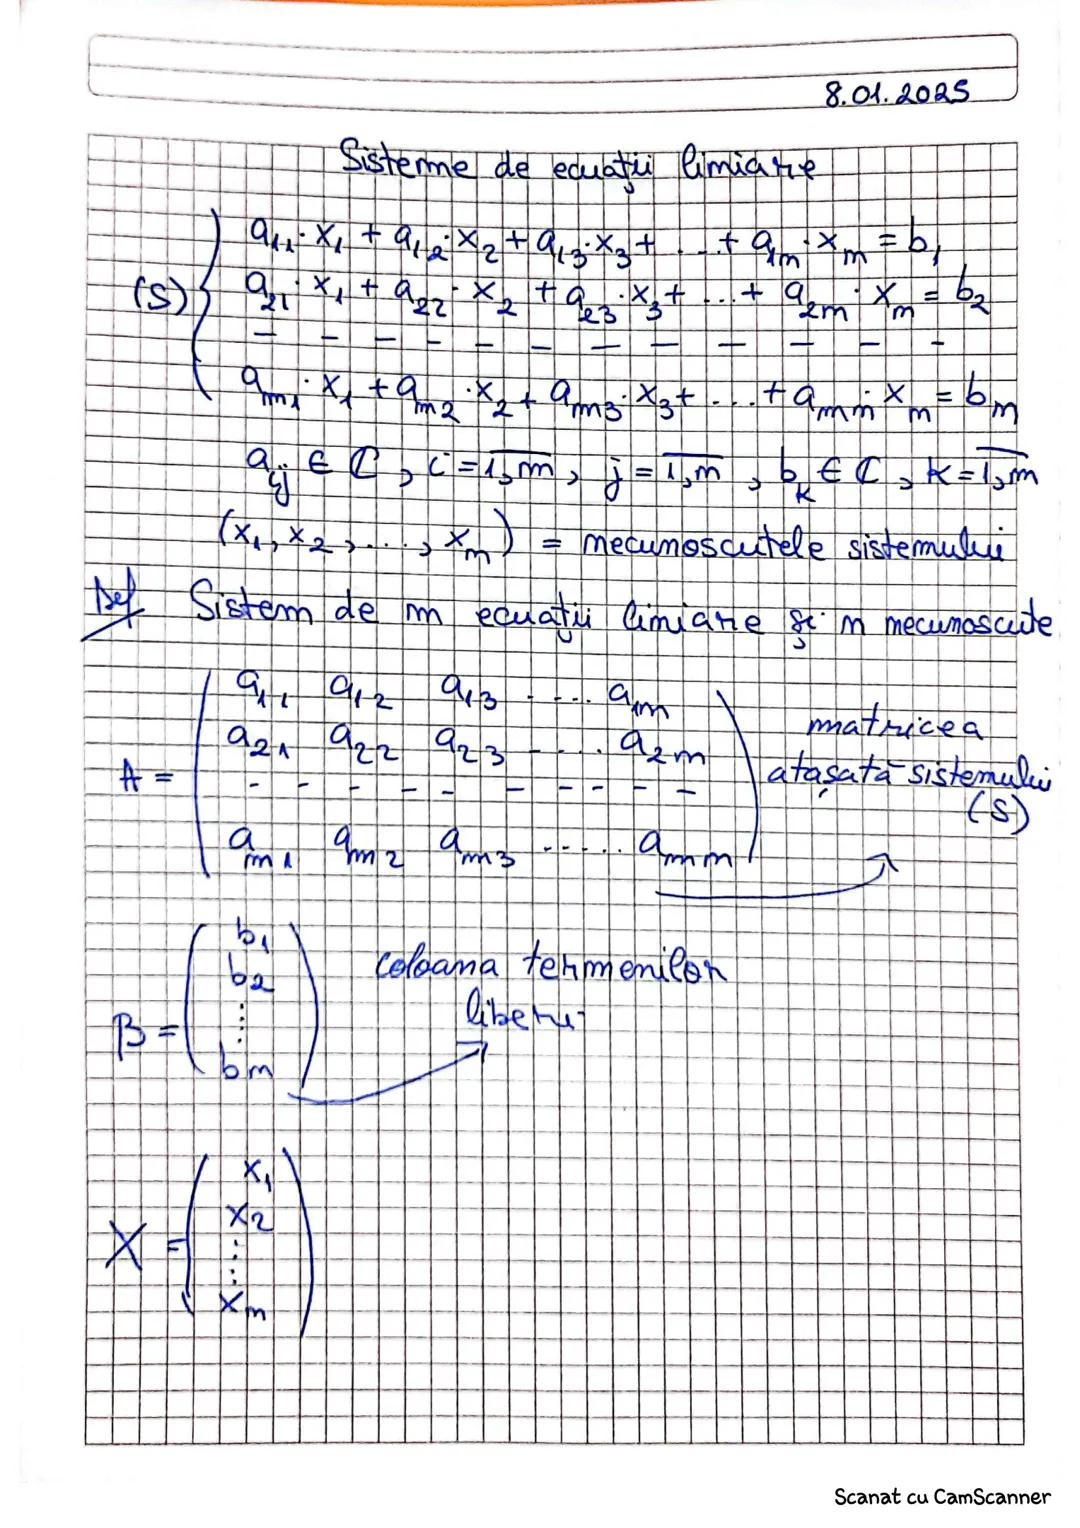 8.01.2025
Sisteme de ecuații liniare
(S) { a₁₁·x₁ + a₁₂·x₂ + a₁₃·x₃ + ... + a₁ₙ·xₙ = b₁
a₂₁·x₁ + a₂₂·x₂ + a₂₃·x₃ + ... + a₂ₙ·xₙ = b₂
— — — — — — — — — — — —
aₘ₁·x₁ + aₘ₂·x₂ + aₘ₃·x₃ + ... + aₘₙ·xₙ = bₘ
aᵢⱼ ∈ ℂ, i = 1,m, j = 1,n, bₖ ∈ ℂ, k = 1,m
(x₁, x₂, ..., xₙ) = necunoscutele sistemului
Def Sistem de m ecuații liniare și n necunoscute
a₁₁ a₁₂ a₁₃ ..... a₁ₙ
matricea
a₂₁ a₂₂ a₂₃ ..... a₂ₙ
A = - - - - - - - - - - atașată sistemului
(S)
aₘ₁ aₘ₂ aₘ₃ ..... aₘₙ
b₁
b₂ coloana termenilor
B = ⋮ liberi
bₘ
x₁
x₂
X = ⋮
xₙ
Scanat cu CamScanner